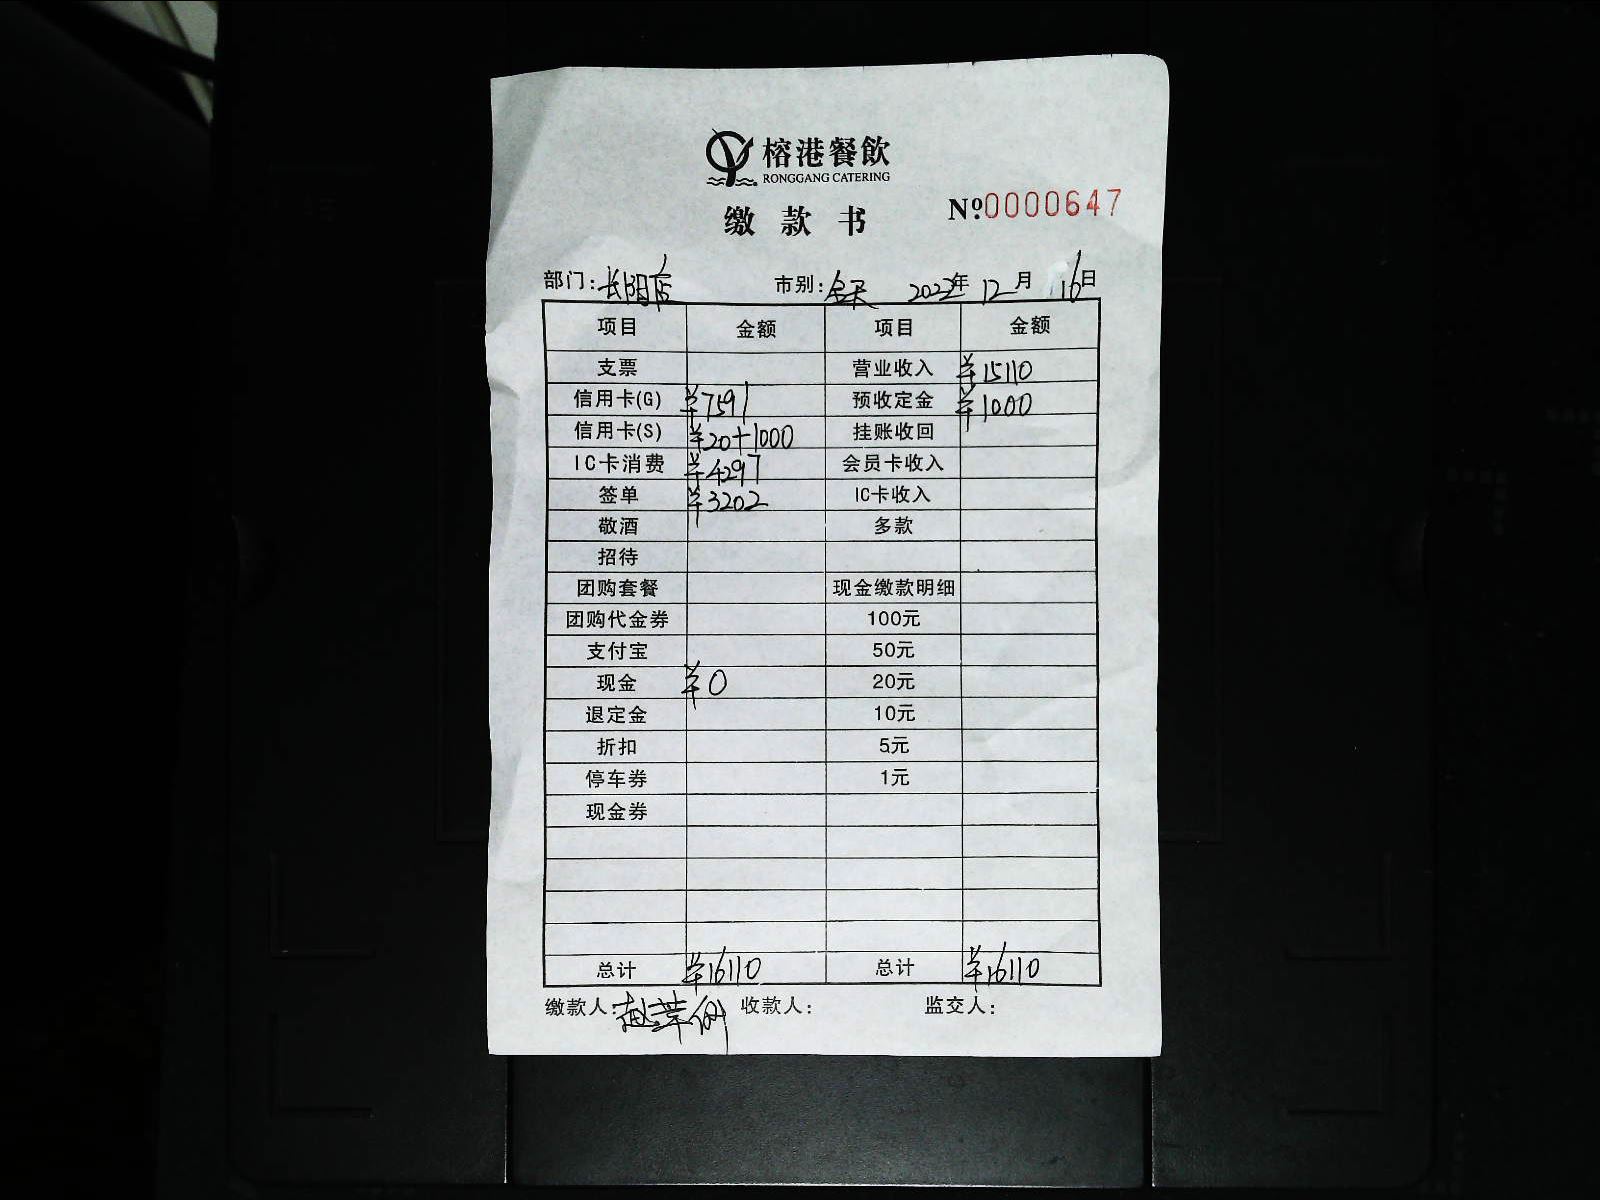 榕港餐飲
RONGGANG CATERING
缴款书 №0000647
部门:长阳店 市别:全天 2022年12月16日
项目 金额 项目 金额
支票 营业收入 ¥15110
信用卡(G) ¥7591 预收定金 ¥1000
信用卡(S) ¥20+1000 挂账收回
IC卡消费 ¥4297 会员卡收入
签单 ¥3202 IC卡收入
敬酒 多款
招待
团购套餐 现金缴款明细
团购代金券 100元
支付宝 50元
现金 ¥0 20元
退定金 10元
折扣 5元
停车券 1元
现金券
总计 ¥16110 总计 ¥16110
缴款人: 收款人: 监交人: